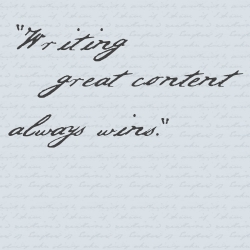 "Writing
great content
always wins."